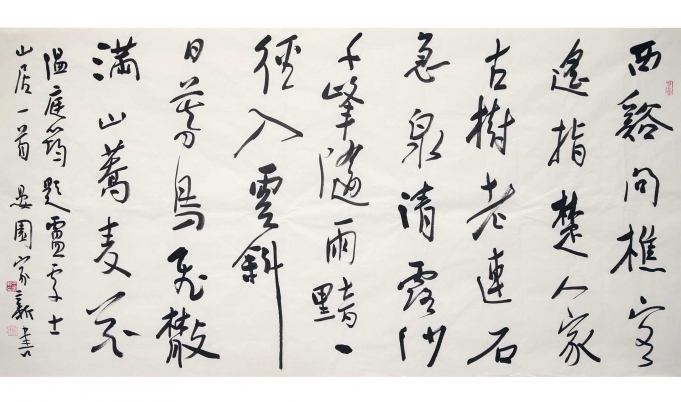 西谿問樵客
遙指楚人家
古樹老連石
急泉清露沙
千峰隨雨黯一
徑入雲斜
日暮鳥飛散
滿山蕎麦花
溫庭筠題盧處士
山居一首 園家新書